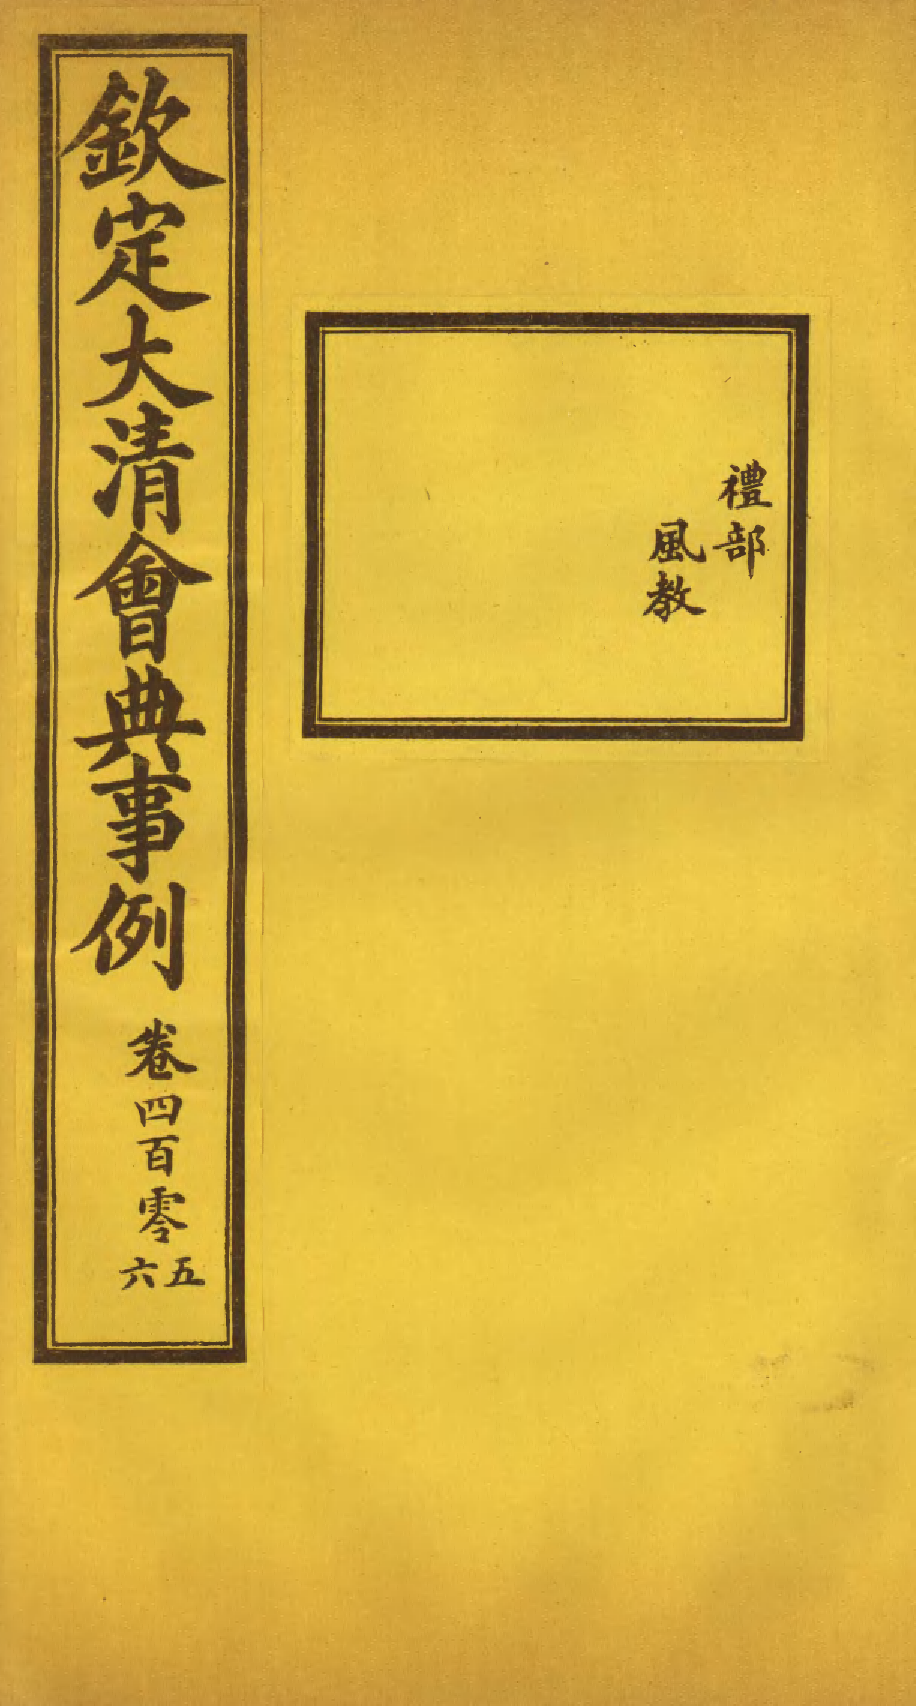 禮部
風教
欽定大清會典事例 卷四百零五六